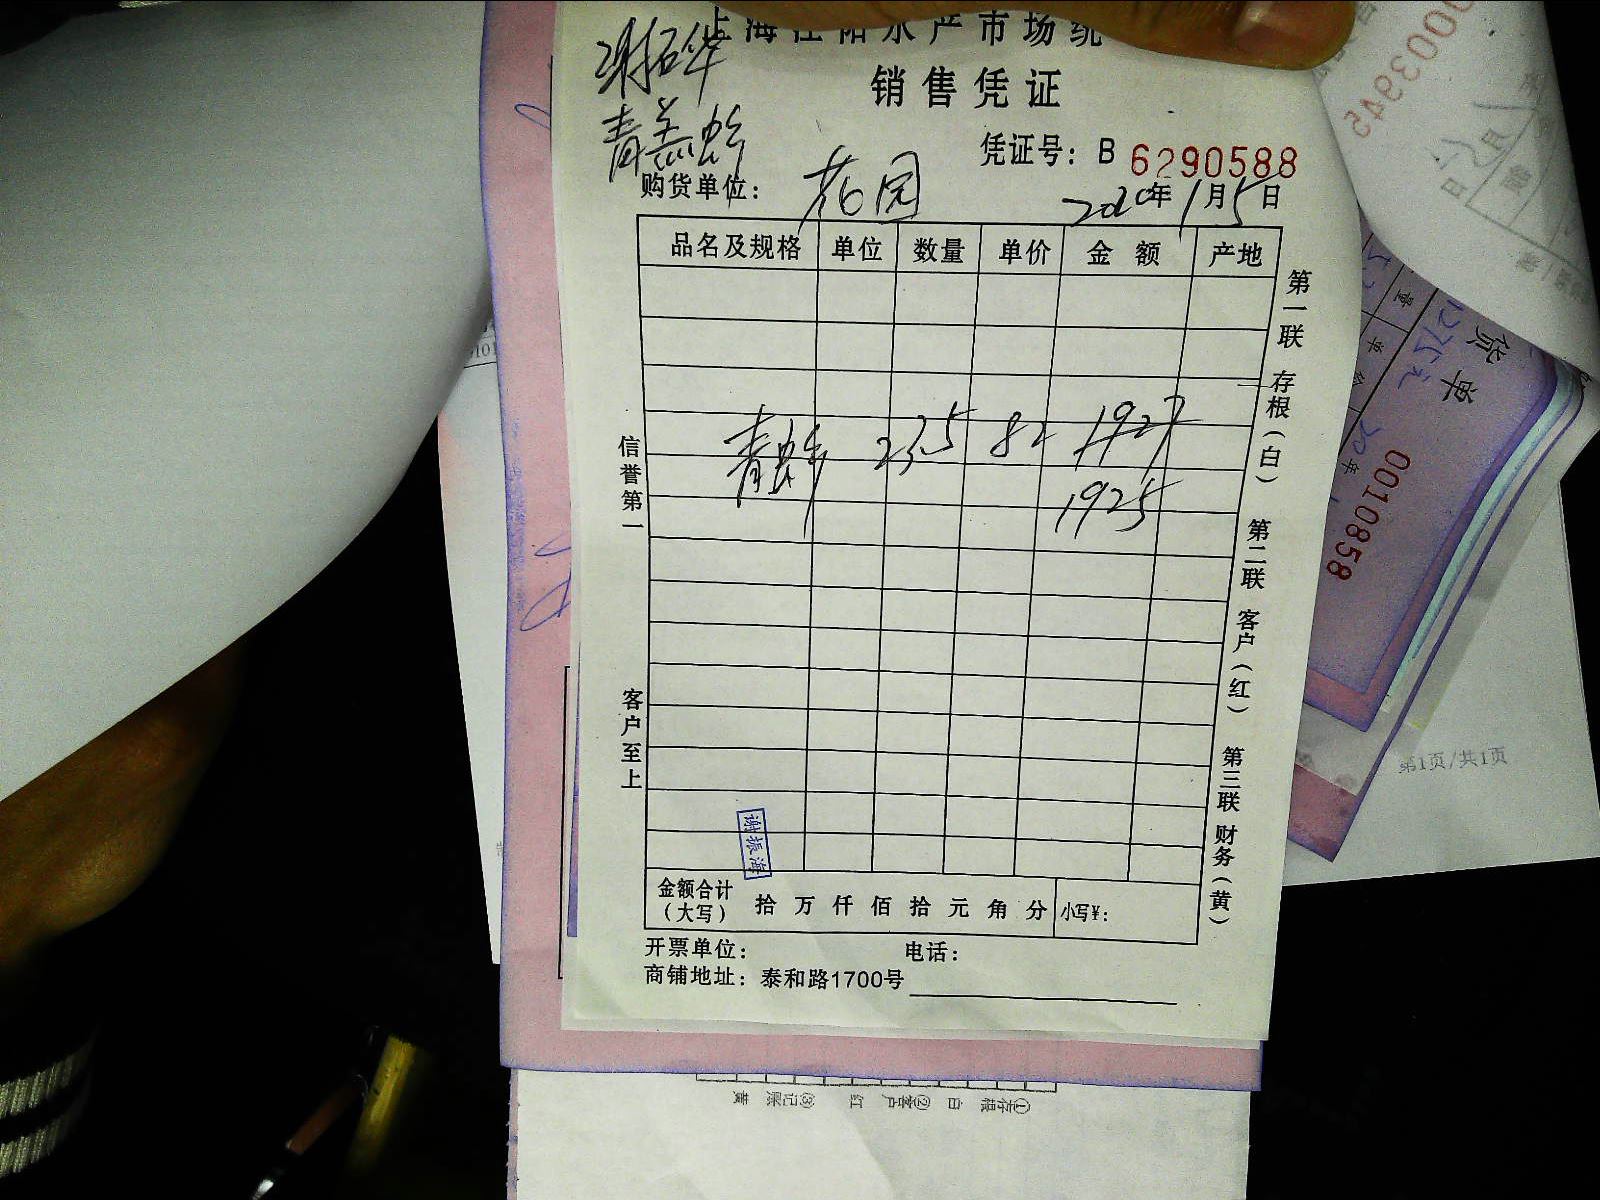 上海江阳水产市场统
销售凭证
青羔蟹
凭证号： B 6290588
购货单位： 花园 2020年1月5日
品名及规格 单位 数量 单价 金 额 产地
青蟹 23.5 82 1927
1925
信誉第一
客户至上
谢振海
第一联 存根（白） 第二联 客户（红） 第三联 财务（黄）
金额合计（大写） 拾 万 仟 佰 拾 元 角 分 小写¥：
开票单位： 电话：
商铺地址： 泰和路1700号
0003945
货单
0010858
第1页/共1页
①存根 白 ②客户 红 ③记账 黄